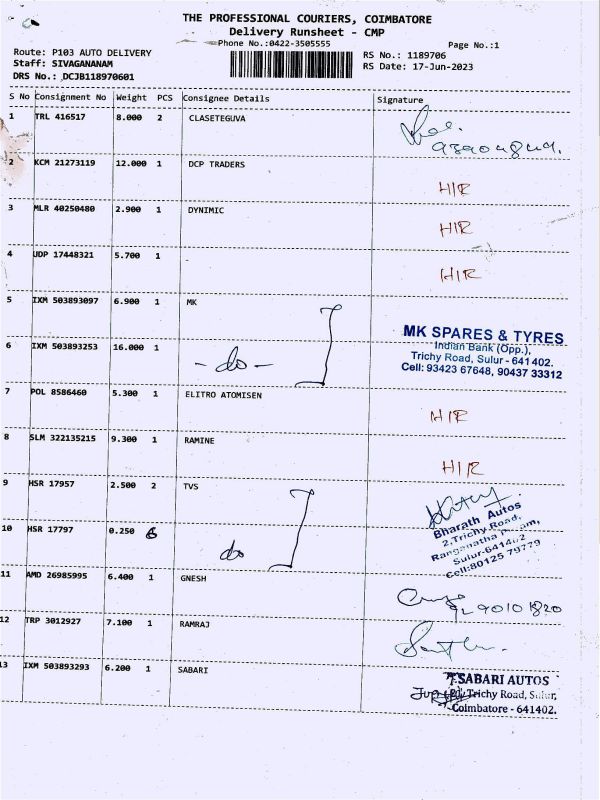 THE PROFESSIONAL COURIERS, COIMBATORE
Delivery Runsheet - CMP
Phone No.:0422-3505555
Page No.:1
Route: P103 AUTO DELIVERY
Staff: SIVAGANANAM
DRS No.: DCJB118970601
RS No.: 1189706
RS Date: 17-Jun-2023
S No Consignment No Weight PCS Consignee Details Signature
1 TRL 416517 8.000 2 CLASETEGUVA
2 KCM 21273119 12.000 1 DCP TRADERS H/R
3 MLR 40250480 2.900 1 DYNIMIC H/R
4 UDP 17448321 5.700 1 - H/R
5 IXM 503893097 6.900 1 MK
MK SPARES & TYRES
Indian Bank (Opp.),
Trichy Road, Sulur - 641 402.
Cell: 93423 67648, 90437 33312
6 IXM 503893253 16.000 1 - do -
7 POL 8586460 5.300 1 ELITRO ATOMISEN H/R
8 SLM 322135215 9.300 1 RAMINE H/R
9 HSR 17957 2.500 2 TVS
Bharath Autos
2,Trichy Road,
Sulur-641402
Cell:80125 79779
10 HSR 17797 0.250 6 do
11 AMD 26985995 6.400 1 GNESH
12 TRP 3012927 7.100 1 RAMRAJ
13 IXM 503893293 6.200 1 SABARI
SABARI AUTOS
Trichy Road, Sulur,
Coimbatore - 641402.